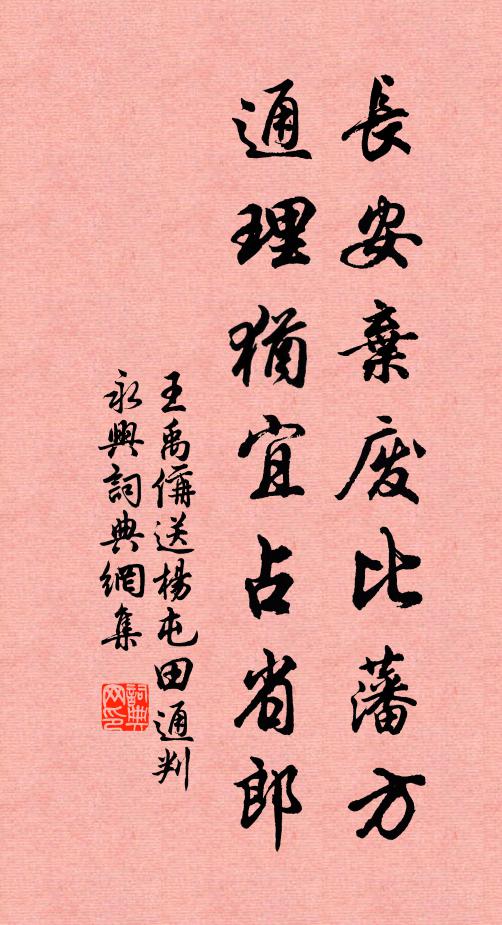 長安棄廢比藩方
通理猶宜占省郎
王禹偁送楊屯田通判
永興詞典網集
詞典网印